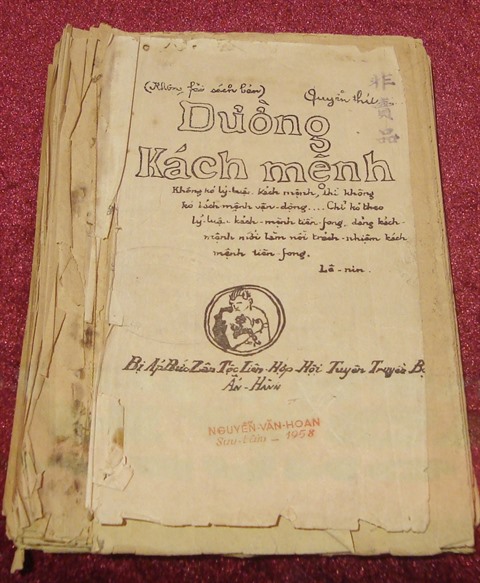 (Không fải sách bán)
Quyển thứ
非賣品
Đường
Kách mệnh
Không kó lý-luận kách mệnh, thì không
kó kách mệnh vận-động.... Chỉ kó theo
lý-luận kách-mệnh tiền-fong, đảng kách-
mệnh mới làm nổi trách-nhiệm kách
mệnh tiền-fong.
Lê-nin.
Bị Áp Bức Zân Tộc Liên-Hợp-Hội Tuyên Truyền Bộ
Ấn-Hành
NGUYỄN-VĂN-HOAN
Sưu tầm - 1958